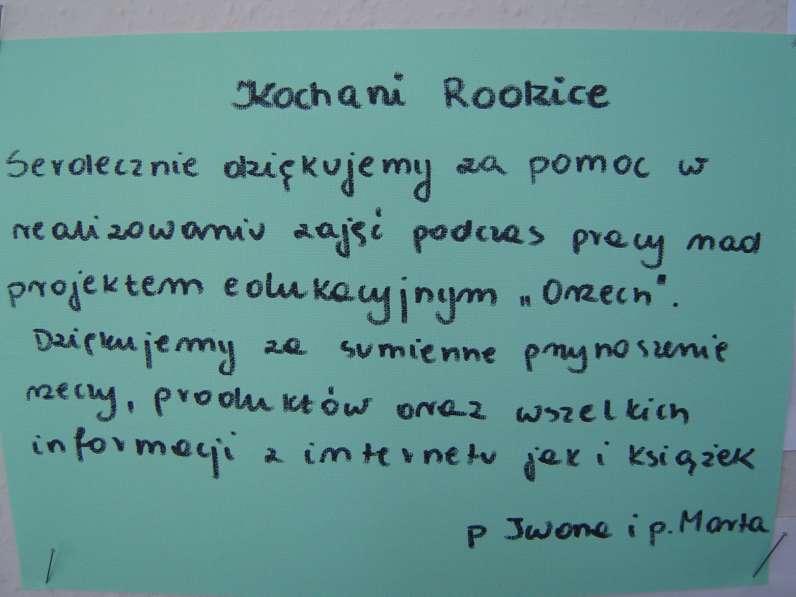 Kochani Rodzice
Serdecznie dziękujemy za pomoc w
realizowaniu zajęć podczas pracy nad
projektem edukacyjnym „Orzech".
Dziękujemy za sumienne przynoszenie
rzeczy, produktów oraz wszelkich
informacji z internetu jak i książek
p Iwona i p. Marta